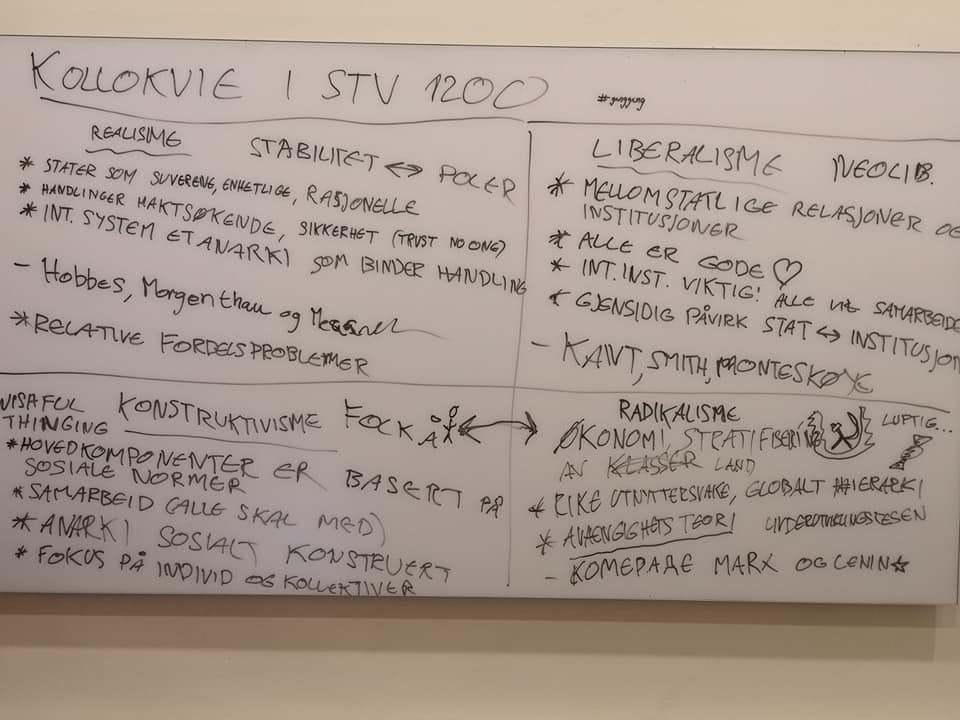 KOLLOKVIE I STV 1200
#gunggung
REALISME
STABILITET ↔ POLER
* STATER SOM SUVERENE, ENHETLIGE, RASJONELLE
* HANDLINGER MAKTSØKENDE, SIKKERHET (TRUST NO ONE)
* INT. SYSTEM ET ANARKI SOM BINDER HANDLING
- Hobbes, Morgenthau og
* RELATIVE FORDELSPROBLEMER
LIBERALISME NEOLIB.
* MELLOMSTATLIGE RELASJONER OG
INSTITUSJONER
* ALLE ER GODE ♡
* INT. INST. VIKTIG! ALLE VIL SAMARBEIDE
* GJENSIDIG PÅVIRK STAT ↔ INSTITUSJON
- KANT, SMITH, MONTESKØYE
WISHFUL
THINGING
KONSTRUKTIVISME FOLK Å
* HOVEDKOMPONENTER ER BASERT PÅ
SOSIALE NORMER
* SAMARBEID (ALLE SKAL MED)
* ANARKI SOSIALT KONSTRUERT
* FOKUS PÅ INDIVID OG KOLLEKTIVER
RADIKALISME
ØKONOMI, STRATIFISERING
AV KLASSER LAND
LUPTIG...
* RIKE UTNYTTER SVAKE, GLOBALT HIERARKI
* AVHENGIGHETSTEORI
- KOMEРАДЕ MARX OG LENIN☆